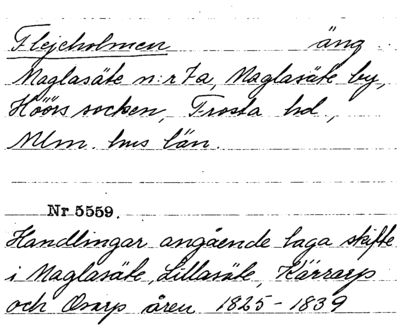 Flejeholmen äng
Maglasäte n:r 7a, Maglasäte by,
Höörs socken, Frosta hd,
Mlm. hus län.
Nr 5559.
Handlingar angående laga skifte
i Maglasäte, Lillasäte, Kärrarp
och Orarp åren 1825-1839